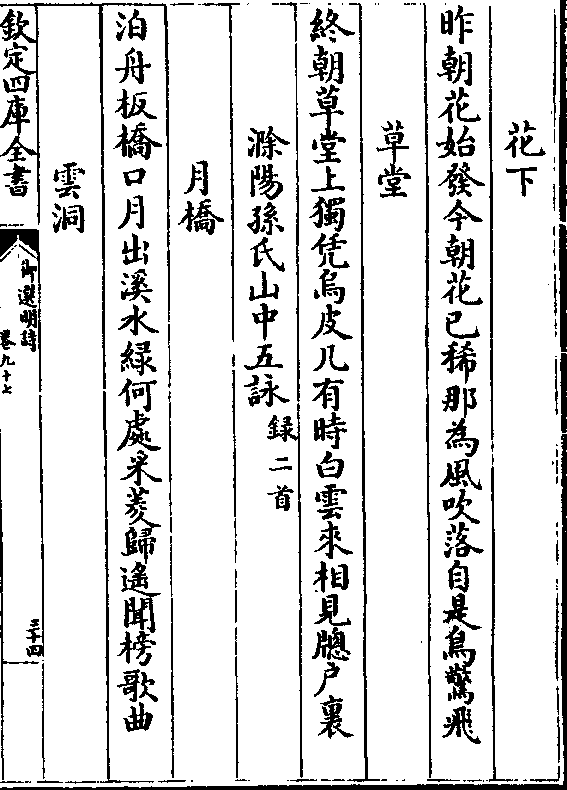 花下
昨朝花始發今朝花已稀那為風吹落自是鳥驚飛
草堂
終朝草堂上獨凭烏皮几有時白雲來相見牕户裏
滁陽孫氏山中五詠録二首
月橋
泊舟板橋口月出溪水緑何處采菱歸遙聞榜歌曲
雲洞
欽定四庫全書
御選明詩
卷九十七
三十四